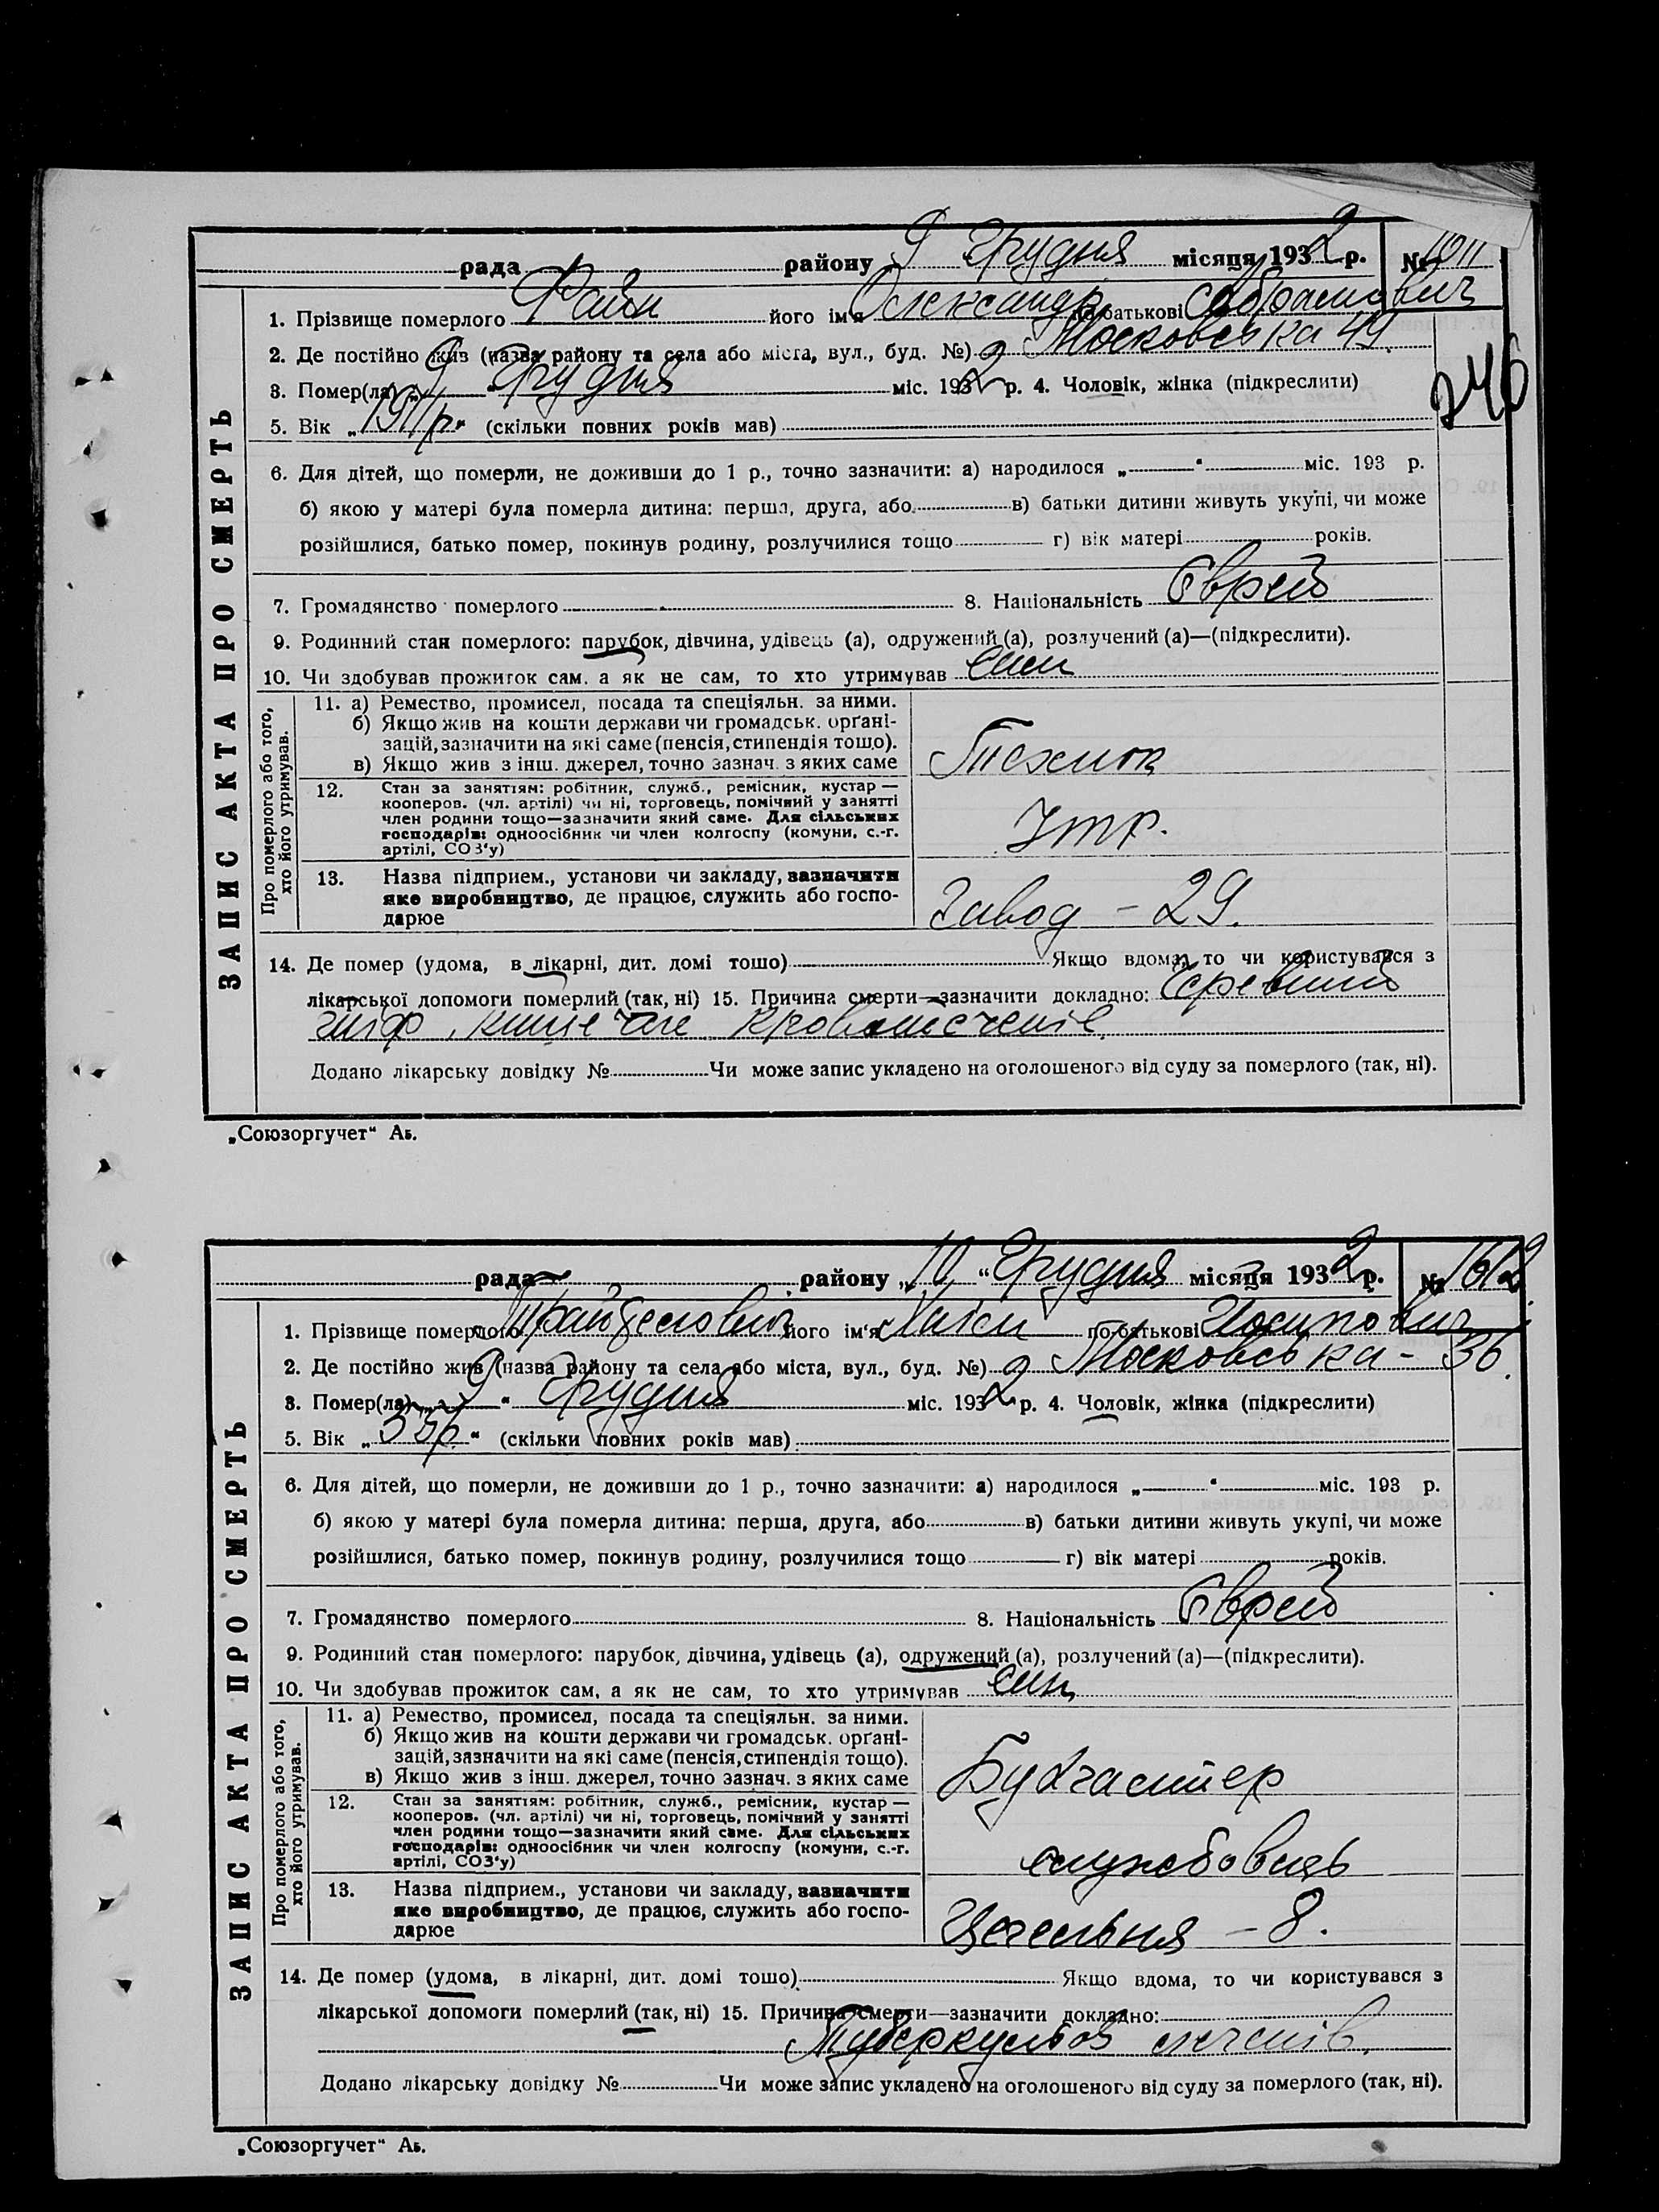 рада району 9 Грудня місяця 1932 р. № 1611
1. Прізвище померлого Файн його ім'я Олександр по батькові Абрамович
2. Де постійно жив (назва району та села або міста, вул., буд. №) Московська 49.
246
3. Помер(ла) „9“ Грудня міс. 1932 р. 4. Чоловік, жінка (підкреслити)
5. Вік „1911р.“ (скільки повних років мав)
6. Для дітей, що померли, не доживши до 1 р., точно зазначити: а) народилося „ “ міс. 193 р.
б) якою у матері була померла дитина: перша, друга, або в) батьки дитини живуть укупі, чи може
розійшлися, батько помер, покинув родину, розлучилися тощо г) вік матері років.
7. Громадянство померлого 8. Національність Єврей
9. Родинний стан померлого: парубок, дівчина, удівець (а), одружений (а), розлучений (а)—(підкреслити).
10. Чи здобував прожиток сам. а як не сам, то хто утримував сам
ЗАПИС АКТА ПРО СМЕРТЬ
Про померлого або того, хто його утримував.
11. а) Ремество, промисел, посада та спеціяльн. за ними.
б) Якщо жив на кошти держави чи громадськ. орґані-
зацій, зазначити на які саме (пенсія, стипендія тощо).
в) Якщо жив з інш. джерел, точно зазнач. з яких саме
Технік
12. Стан за заняттям: робітник, служб., ремісник, кустар —
кооперов. (чл. артілі) чи ні, торговець, помічний у занятті
член родини тощо—зазначити який саме. Для сільських
господарів: одноосібник чи член колгоспу (комуни, с.-г.
артілі, СОЗ'у)
Ітр.
13. Назва підприєм., установи чи закладу, зазначити
яке виробництво, де працює, служить або госпо-
дарює
Завод – 29.
14. Де помер (удома, в лікарні, дит. домі тошо) Якщо вдома, то чи користувався з
лікарської допомоги померлий (так, ні) 15. Причина смерти—зазначити докладно: Черевний
тиф, кишечне кровотеченіе
Додано лікарську довідку № Чи може запис укладено на оголошеного від суду за померлого (так, ні).
„Союзоргучет“ Аъ.
рада району „10“ Грудня місяця 1932 р. № 1612
1. Прізвище померлого його ім'я по батькові Йосипович
2. Де постійно жив (назва району та села або міста, вул., буд. №) Московська – 36.
3. Помер(ла) „9“ Грудня міс. 1932 р. 4. Чоловік, жінка (підкреслити)
5. Вік „33р.“ (скільки повних років мав)
6. Для дітей, що померли, не доживши до 1 р., точно зазначити: а) народилося „ “ міс. 193 р.
б) якою у матері була померла дитина: перша, друга, або в) батьки дитини живуть укупі, чи може
розійшлися, батько помер, покинув родину, розлучилися тощо г) вік матері років.
7. Громадянство померлого 8. Національність Єврей
9. Родинний стан померлого: парубок, дівчина, удівець (а), одружений (а), розлучений (а)—(підкреслити).
10. Чи здобував прожиток сам, а як не сам, то хто утримував сам
ЗАПИС АКТА ПРО СМЕРТЬ
Про померлого або того, хто його утримував.
11. а) Ремество, промисел, посада та спеціяльн. за ними.
б) Якщо жив на кошти держави чи громадськ. орґані-
зацій, зазначити на які саме (пенсія, стипендія тощо).
в) Якщо жив з інш. джерел, точно зазнач. з яких саме
Бухгалтер
12. Стан за заняттям: робітник, служб., ремісник, кустар —
кооперов. (чл. артілі) чи ні, торговець, помічний у занятті
член родини тощо—зазначити який саме. Для сільських
господарів: одноосібник чи член колгоспу (комуни, с.-г.
артілі, СОЗ'у)
службовець
13. Назва підприєм., установи чи закладу, зазначити
яке виробництво, де працює, служить або госпо-
дарює
Цегельня – 8.
14. Де помер (удома, в лікарні, дит. домі тошо) Якщо вдома, то чи користувався з
лікарської допомоги померлий (так, ні) 15. Причина смерти—зазначити докладно:
Туберкульоз легенів.
Додано лікарську довідку № Чи може запис укладено на оголошеного від суду за померлого (так, ні).
„Союзоргучет“ Аъ.